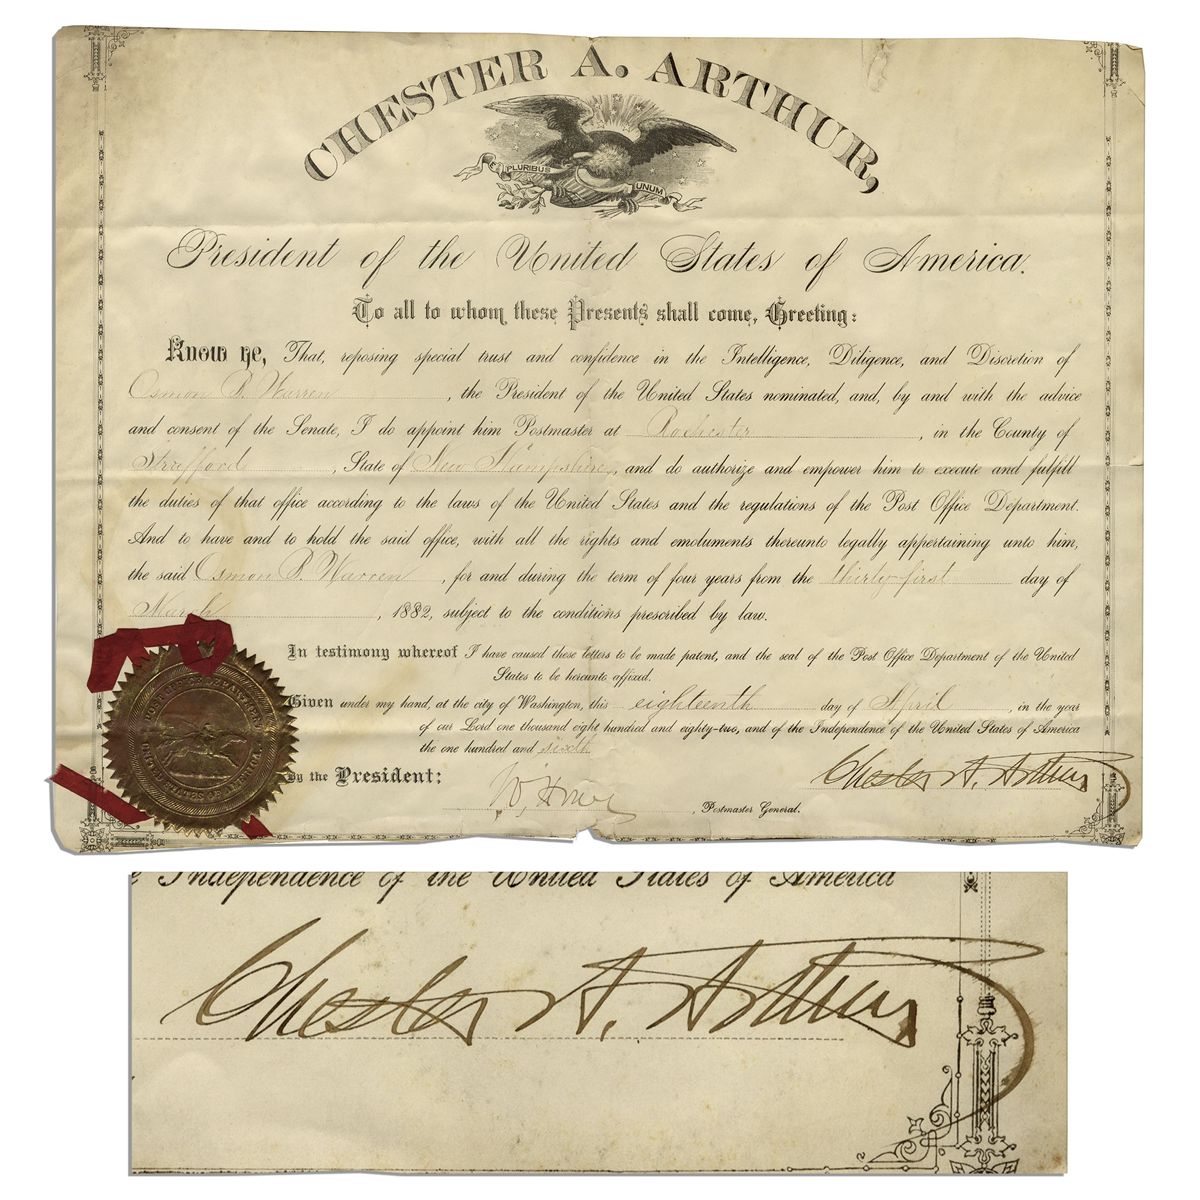 CHESTER A. ARTHUR,
E PLURIBUS UNUM
President of the United States of America.
To all to whom these Presents shall come, Greeting:
Know ye, That, reposing special trust and confidence in the Intelligence, Diligence, and Discretion of
Osmon B. Warren, the President of the United States nominated, and, by and with the advice
and consent of the Senate, I do appoint him Postmaster at Rochester, in the County of
Strafford, State of New Hampshire, and do authorize and empower him to execute and fulfill
the duties of that office according to the laws of the United States and the regulations of the Post Office Department.
And to have and to hold the said office, with all the rights and emoluments thereunto legally appertaining unto him,
the said Osmon B. Warren, for and during the term of four years from the thirty-first day of
March, 1882, subject to the conditions prescribed by law.
In testimony whereof I have caused these letters to be made patent, and the seal of the Post Office Department of the United
States to be hereunto affixed.
Given under my hand, at the city of Washington, this eighteenth day of April, in the year
of our Lord one thousand eight hundred and eighty-two, and of the Independence of the United States of America
the one hundred and sixth
By the President:
Chester A. Arthur
, Postmaster General.
POST OFFICE DEPARTMENT
UNITED STATES OF AMERICA.
Independence of the United States of America
Chester A. Arthur